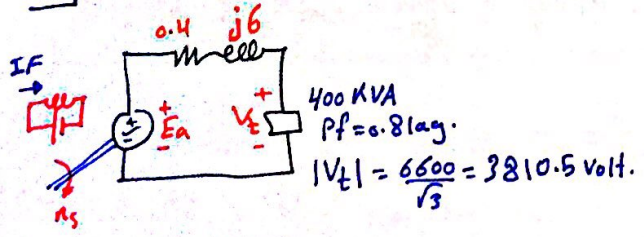 0.4 j6
IF
+ Ea -
+ Vt -
400 KVA
Pf=0.8 lag.
|Vt| = 6600/√3 = 3810.5 volt.
ns